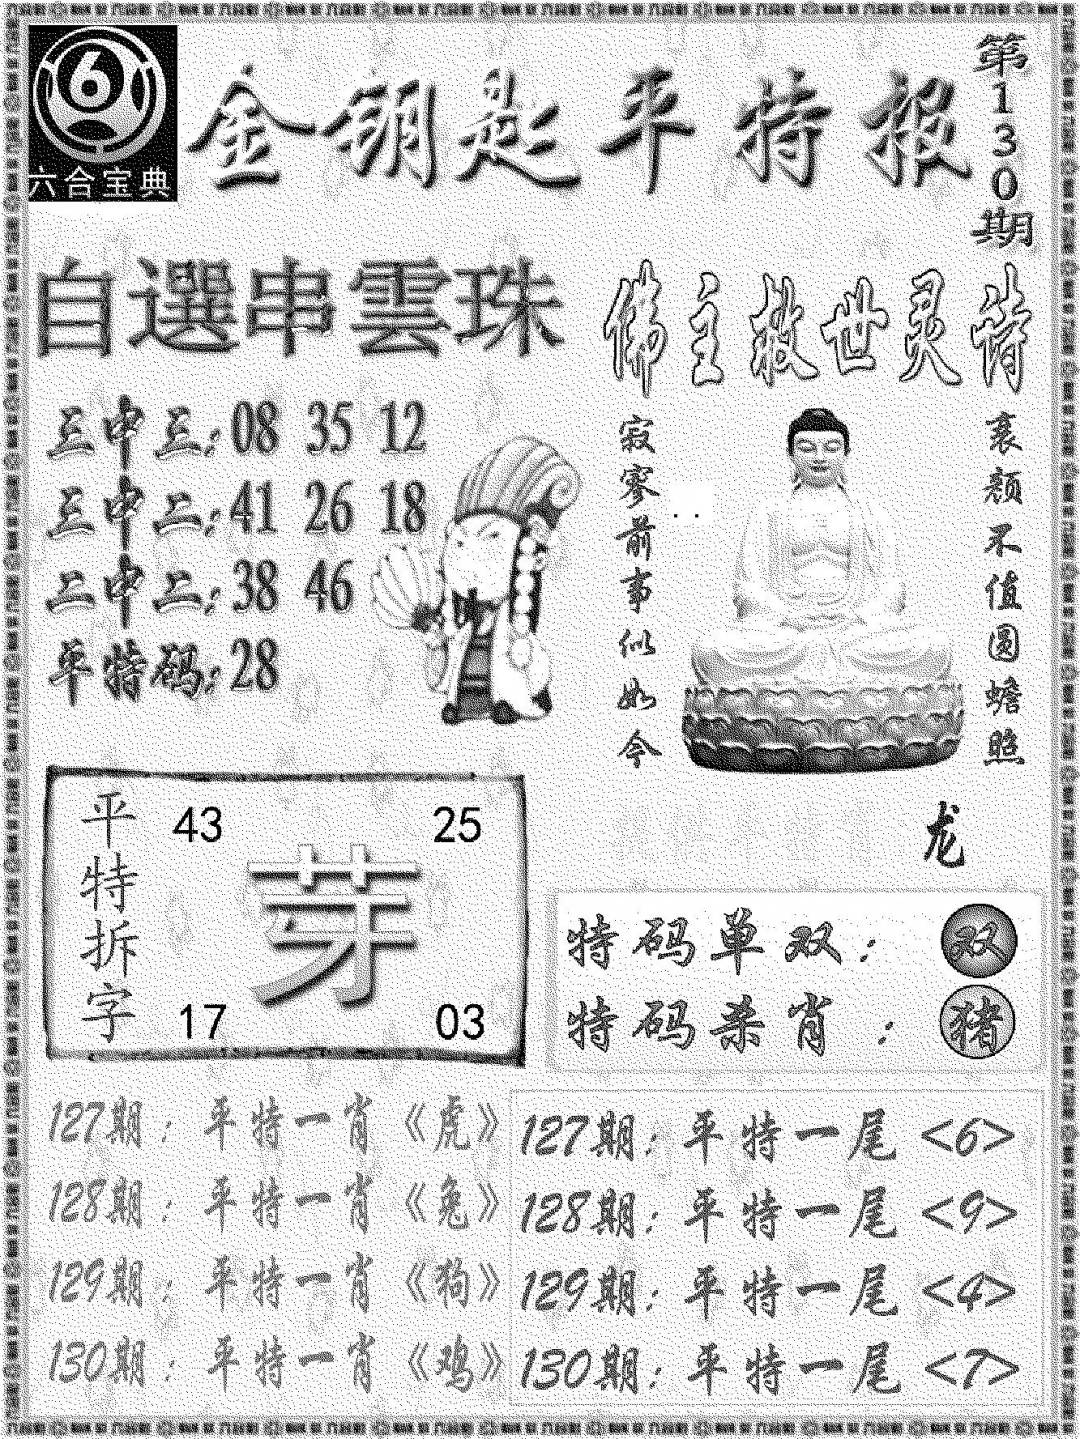 六合宝典
金钥匙平特报
第130期
自選串雲珠
三中三:08 35 12
三中二:41 26 18
二中二:38 46
平特码:28
佛主救世灵诗
衰颜不值圆蟾照
寂寥前事似如今
龙
平特拆字
43 25
芽
17 03
特码单双：双
特码杀肖：猪
127期：平特一肖《虎》
128期：平特一肖《兔》
129期：平特一肖《狗》
130期：平特一肖《鸡》
127期：平特一尾<6>
128期：平特一尾<9>
129期：平特一尾<4>
130期：平特一尾<7>